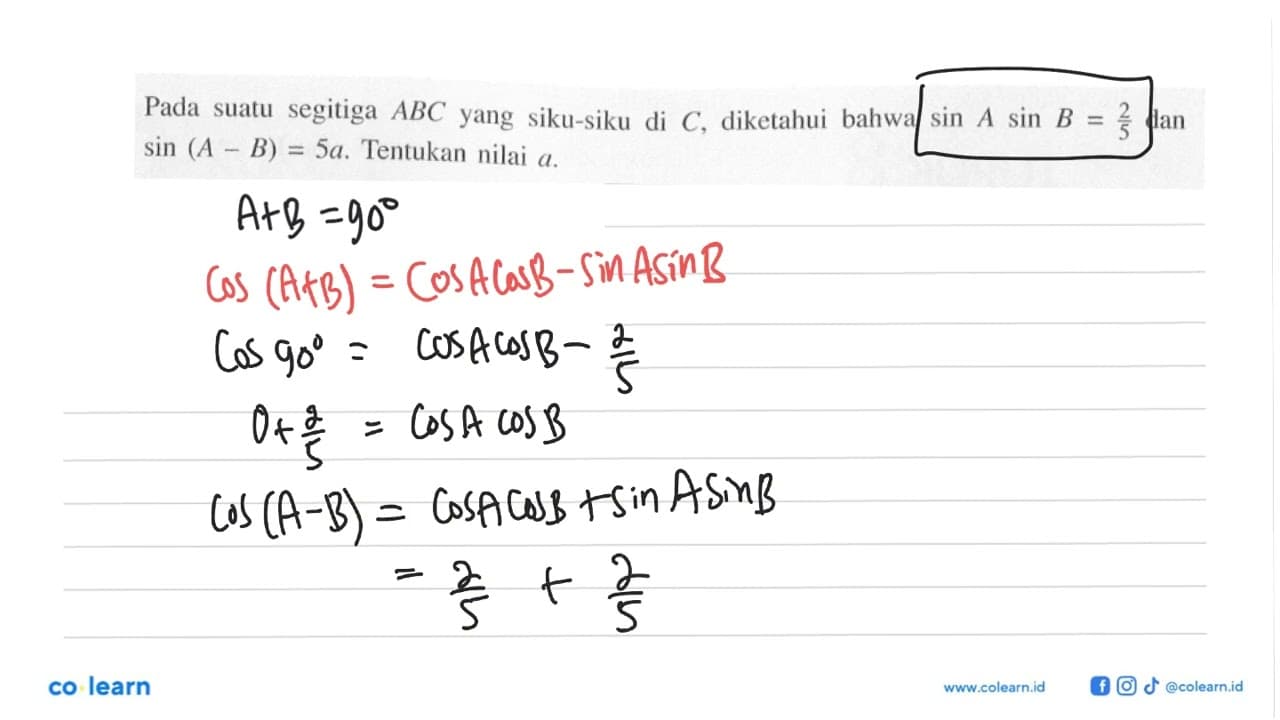 Pada suatu segitiga ABC yang siku-siku di C, diketahui bahwa sin A sin B = 2/5 dan
sin (A – B) = 5a. Tentukan nilai a.
A+B = 90°
Cos (A+B) = Cos A Cos B - Sin A Sin B
Cos 90° = Cos A Cos B - 2/5
0 + 2/5 = Cos A Cos B
Cos (A-B) = Cos A Cos B + Sin A Sin B
= 2/5 + 2/5
co learn
www.colearn.id
@colearn.id